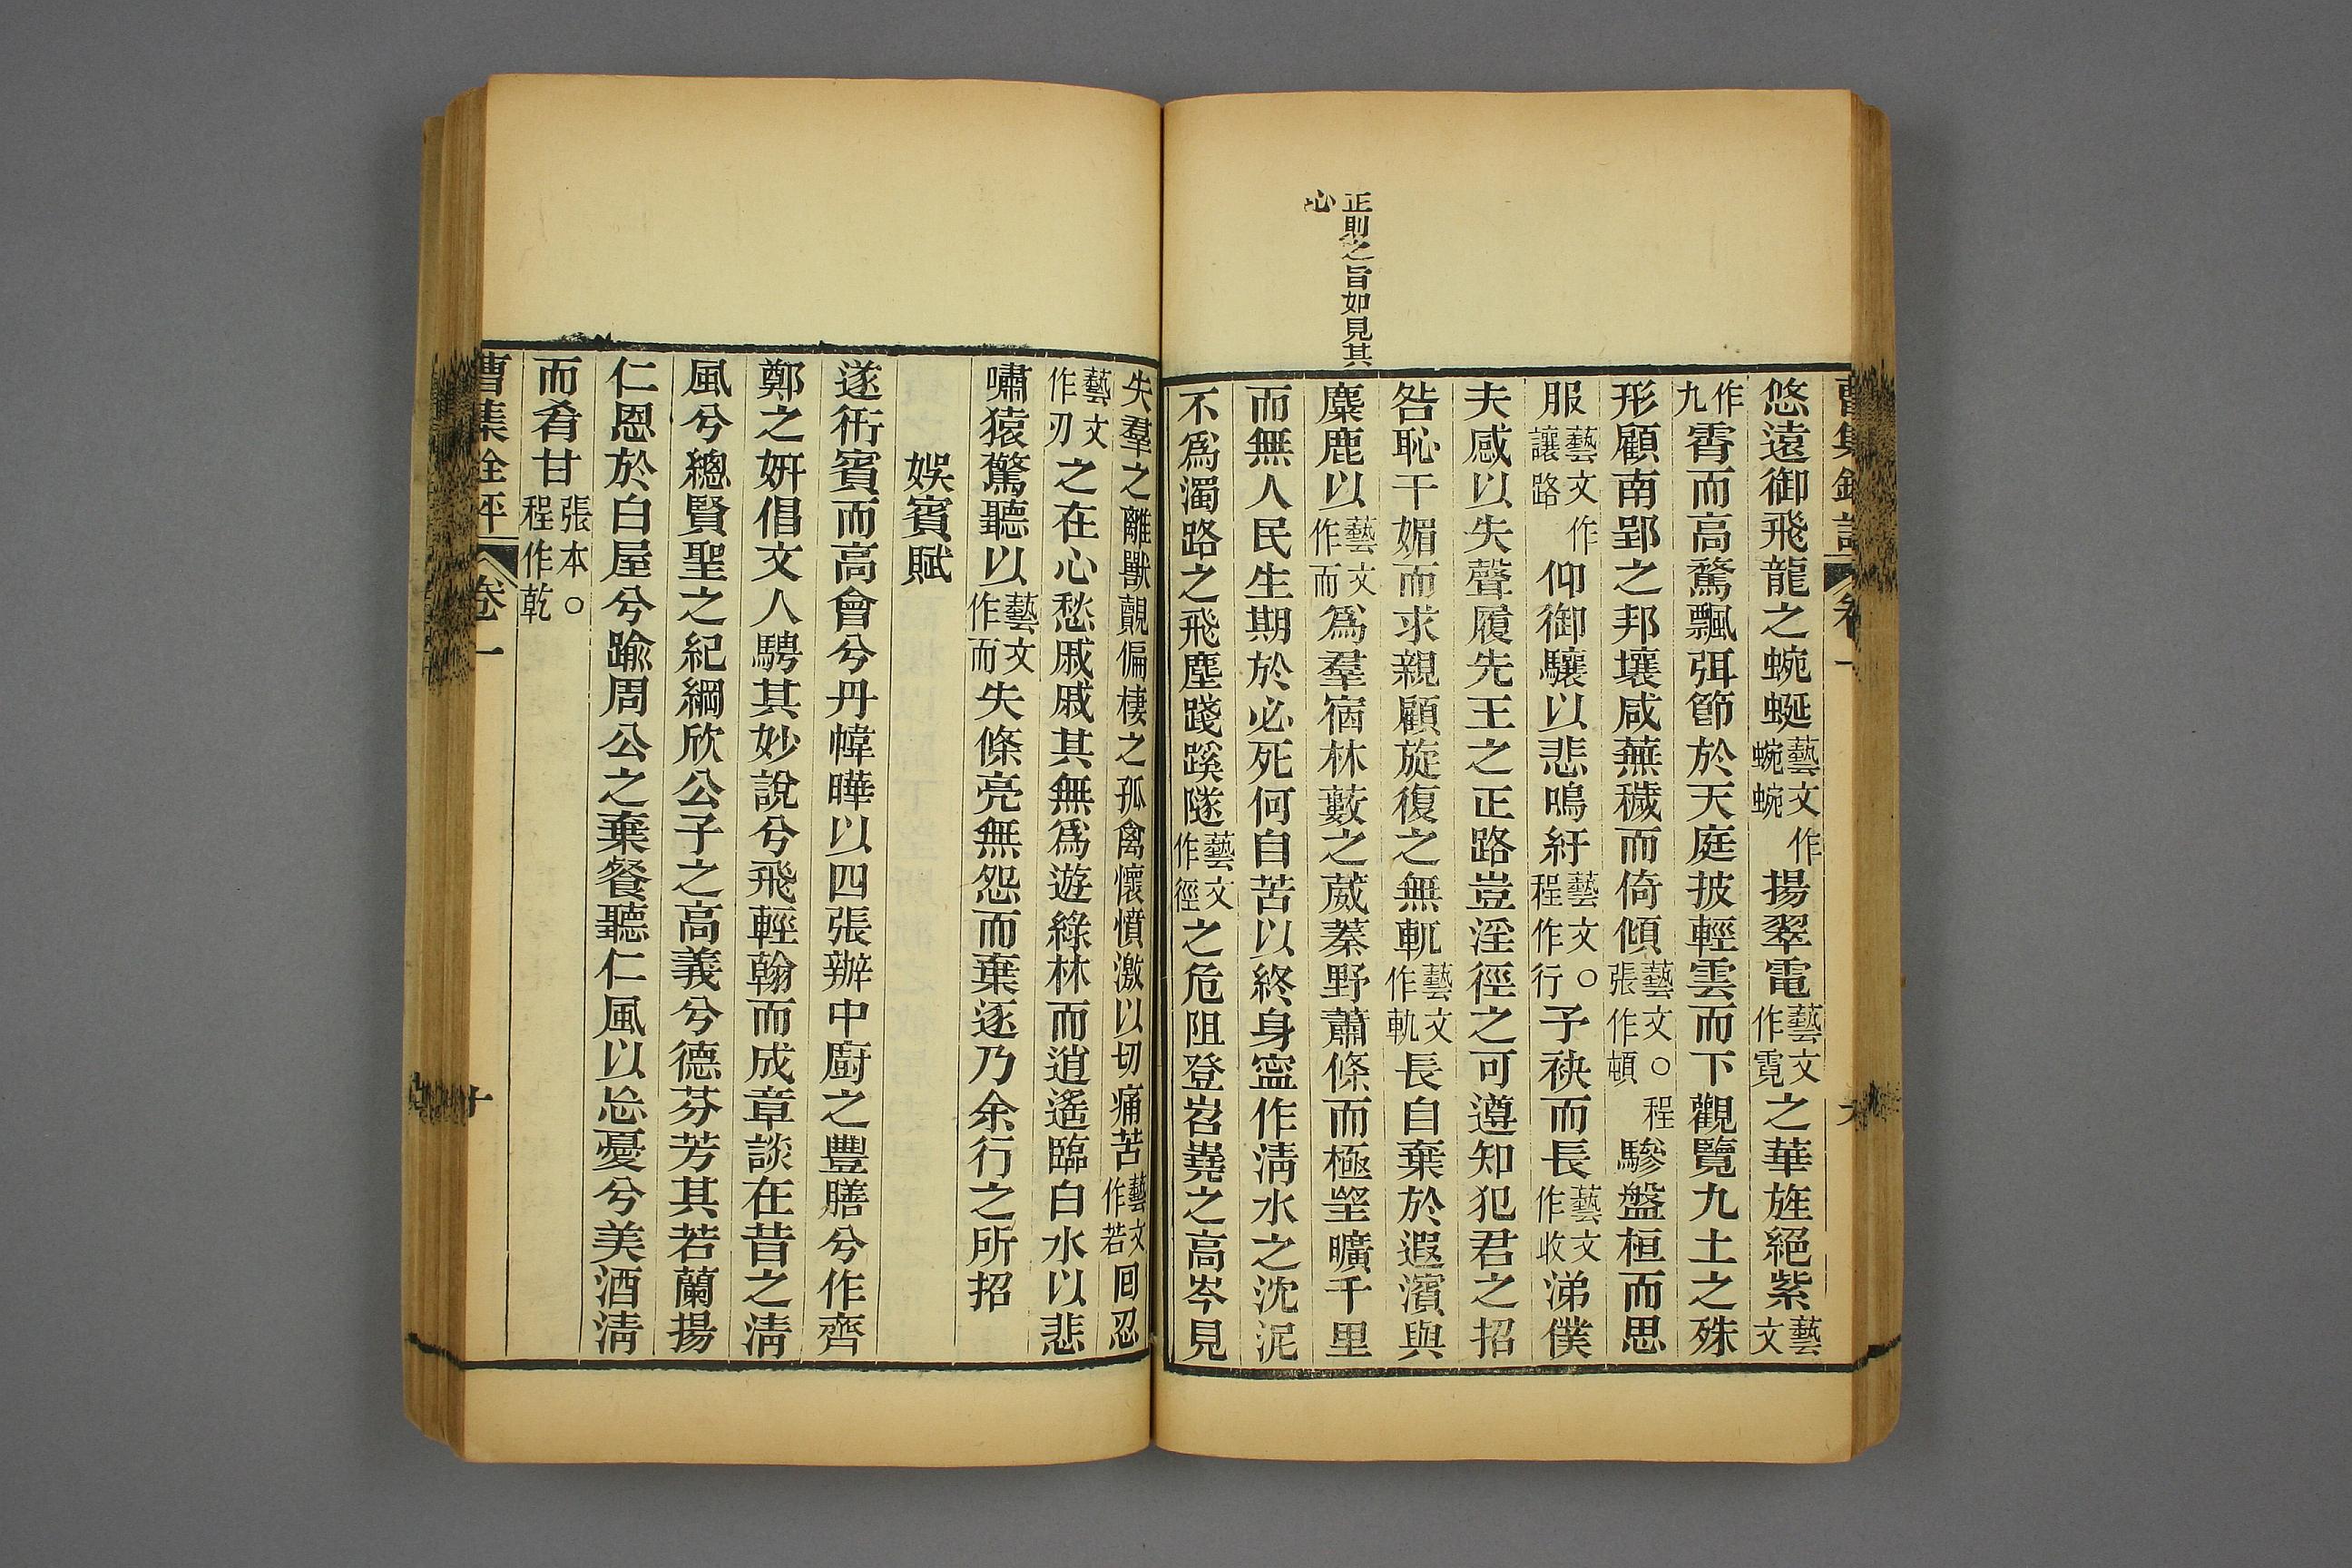 正則之旨如見其
心
悠遠御飛龍之蜿蜒藝文作蜿蜿揚翠電藝文作霓之華旌絕紫藝文
作九霄而高騖飄弭節於天庭披輕雲而下觀覽九土之殊
形顧南郢之邦壤咸蕪穢而倚傾藝文○程張作頓驂盤桓而思
服藝文作讓路仰御驤以悲鳴紆藝文○程作行予袂而長藝文作收涕僕
夫感以失聲履先王之正路豈淫徑之可遵知犯君之招
咎恥干媚而求親顧旋復之無軏藝文作軌長自棄於遐濱與
麋鹿以藝文作而爲羣宿林藪之葳蓁野蕭條而極望曠千里
而無人民生期於必死何自苦以終身寧作淸水之沈泥
不爲濁路之飛塵踐蹊隧藝文作徑之危阻登岧嶤之高岑見
失羣之離獸覿偏棲之孤禽懷憤激以切痛苦藝文作若囘忍
藝文作刃之在心愁戚戚其無爲遊綠林而逍遙臨白水以悲
嘯猿驚聽以藝文作而失條亮無怨而棄逐乃余行之所招
娛賓賦
遂衎賓而高會兮丹幃曄以四張辦中廚之豐膳兮作齊
鄭之姸倡文人騁其妙說兮飛輕翰而成章談在昔之淸
風兮總賢聖之紀綱欣公子之高義兮德芬芳其若蘭揚
仁恩於白屋兮踰周公之棄餐聽仁風以忘憂兮美酒淸
而肴甘張本○程作乾
曹集銓評 卷一 十